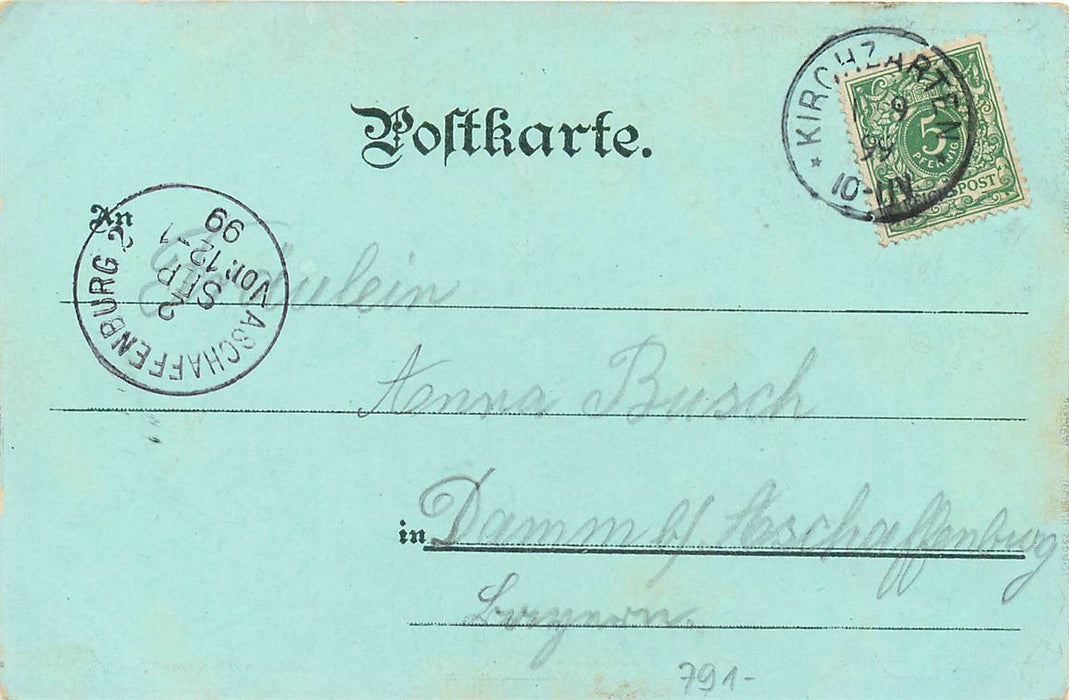 Postkarte.
KIRCHZARTEN
9
99
10-11N
5
PFENNIG
REICHSPOST
An
ASCHAFFENBURG 2
2
SEP
Vor.12-1
99
Fräulein
Anna Busch
in Damm b/ Aschaffenburg
Bayern.
791-